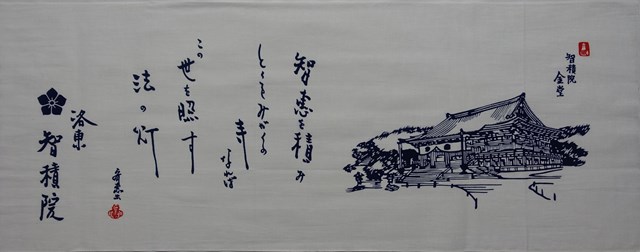 智積院
金堂
智恵を積み
みがくの
寺なれば
この世を照す
法の灯
洛東
智積院